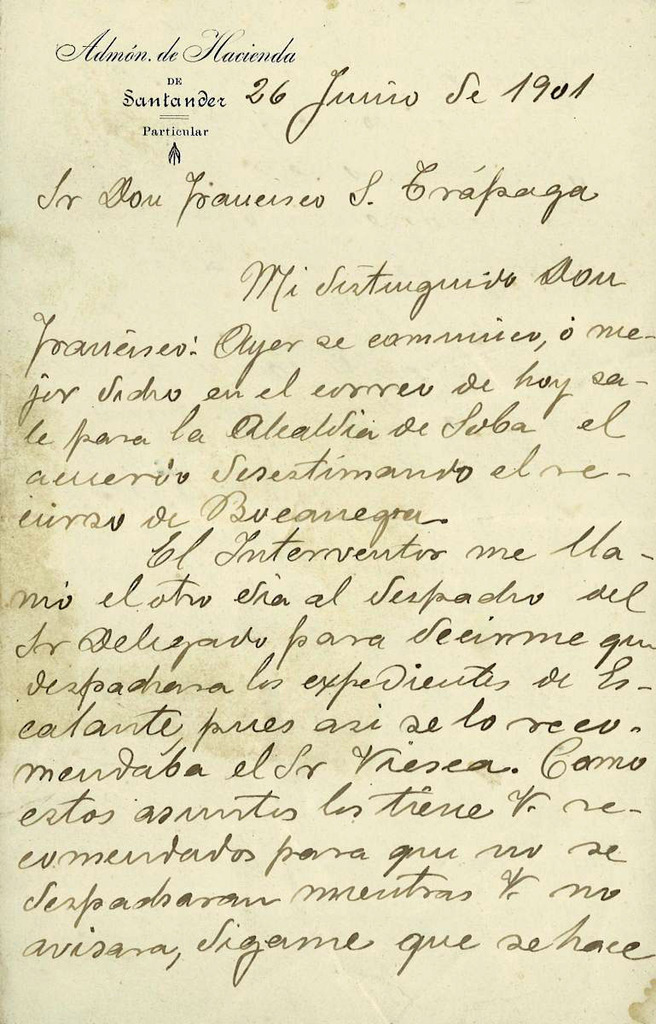 Admón. de Hacienda
DE
Santander
Particular
26 Junio de 1901
Sr Don Francisco S. Trápaga
Mi distinguido Don
Francisco: Ayer se comunicó, ó me-
jor dicho en el correo de hoy sa-
le para la Alcaldia de Soba el
acuerdo desestimando el re-
curso de Bocanegra.
El Interventor me lla-
mó el otro dia al despacho del
Sr Delegado para decirme que
despachara los expedientes de Es-
calante, pues asi se lo reco-
mendába el Sr Viesca. Como
estos asuntos los tiene V. re-
comendados para que no se
despacharan mientras V. no
avisara, digame que se hace